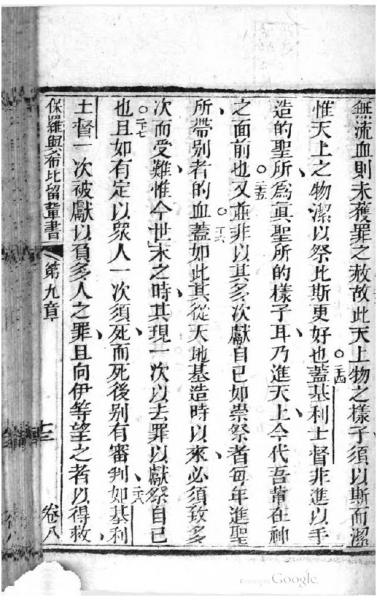 無流血則未獲罪之赦故此天上物之樣子須以斯而潔
惟天上之物潔以祭比斯更好也○二四蓋基利士督非進以手
造的聖所為真聖所的樣子耳乃進天上今代吾輩在神
之面前也○二五又並非以其多次獻自己如崇祭者每年進聖
所帶別者的血○二六蓋如此其從天地基造時以來必須致多
次而受難惟今世末之時其現一次以去罪以獻祭自己
也○二七且如有定以眾人一次須死而死後別有審判○二八如基利
士督一次被獻以負多人之罪且向伊等望之者以得救
保羅與希比留輩書 第九章 十三 卷八
Google